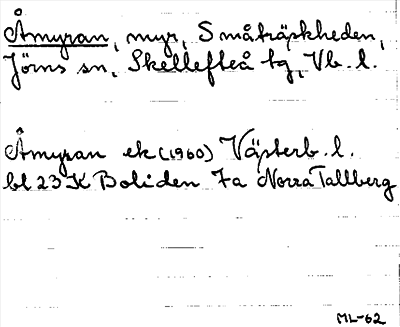 Åmyran, myr, Småträskheden,
Jörns sn, Skellefteå tg, Vb. l.
Åmyran ek (1960) Västerb. l.
bl 23 K Boliden 7a Norra Tallberg
ML-62